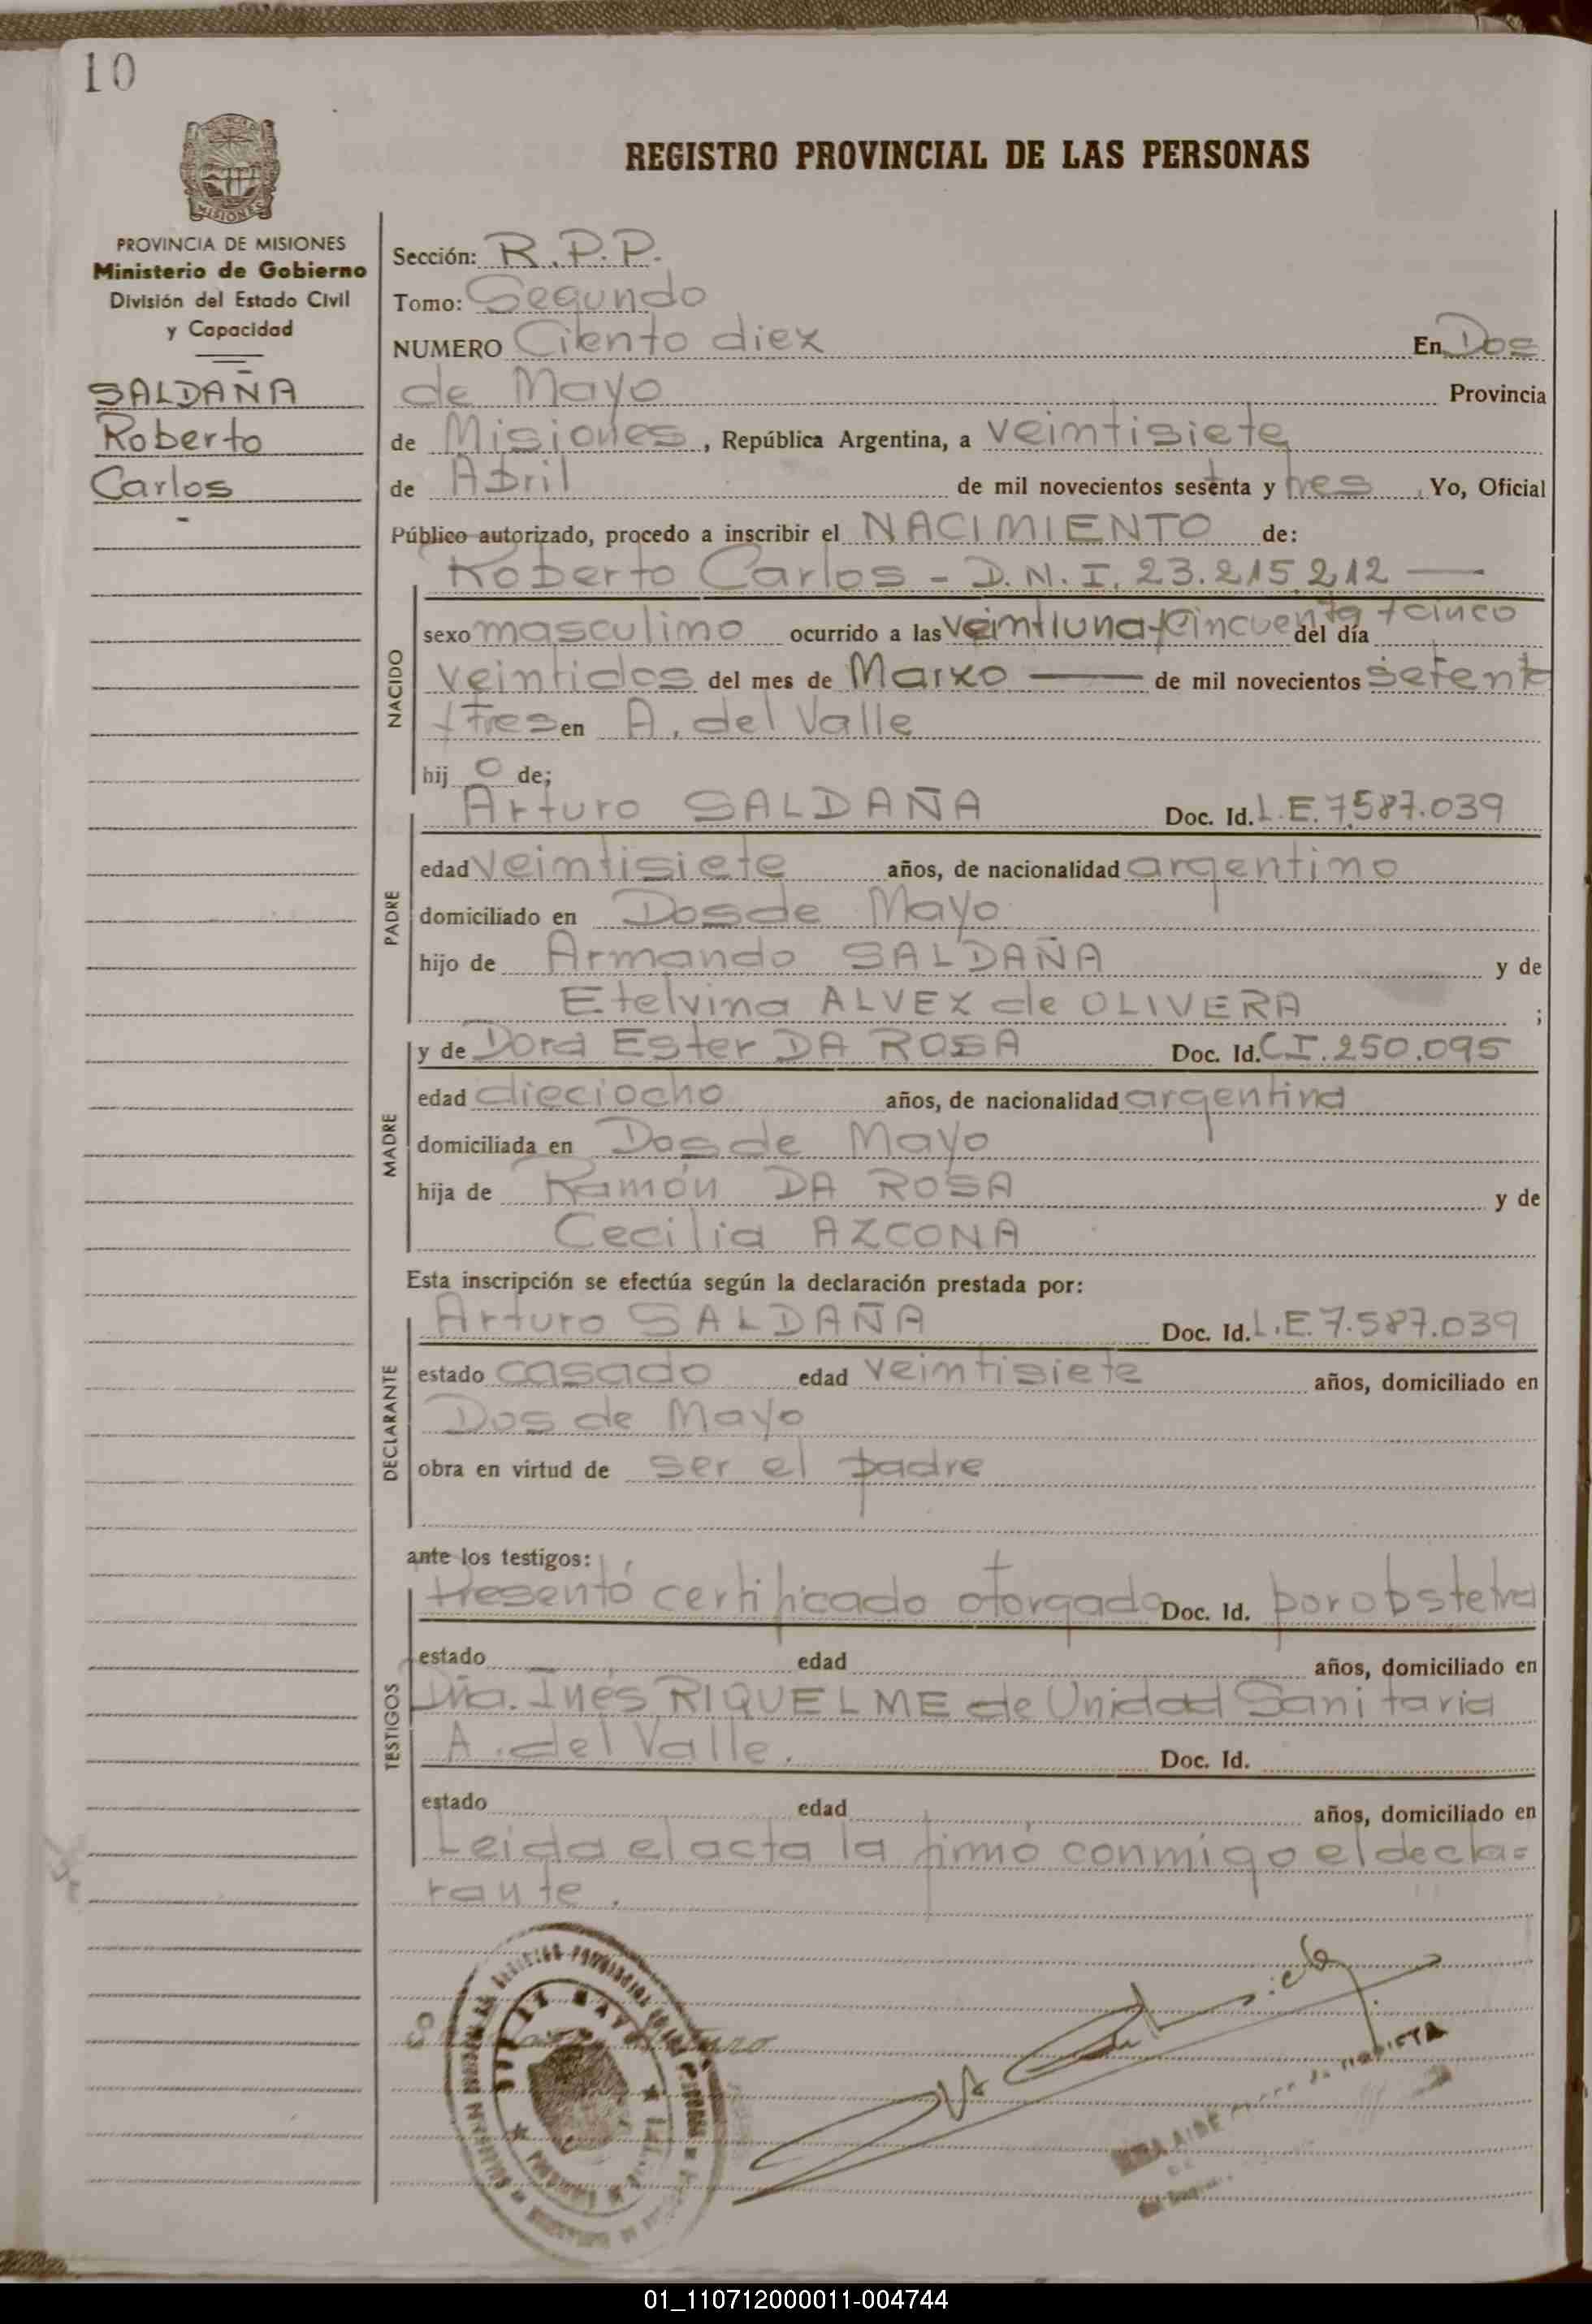 10
REGISTRO PROVINCIAL DE LAS PERSONAS
MISIONES
PROVINCIA DE MISIONES
Ministerio de Gobierno
División del Estado Civil
y Capacidad
SALDAÑA
Roberto
Carlos
Sección: R.P.P.
Tomo: Segundo
NUMERO Ciento diez En Dos
de Mayo Provincia
de Misiones, República Argentina, a veintisiete
de Abril de mil novecientos sesenta y tres, Yo, Oficial
Público autorizado, procedo a inscribir el NACIMIENTO de:
Roberto Carlos - D.N.I. 23.215.212 —
NACIDO
sexo masculino ocurrido a las veintiuna y cincuenta y cinco del día
veintidos del mes de Marzo — de mil novecientos setenta
y tres en A. del Valle
hij o de;
PADRE
Arturo SALDAÑA Doc. Id. L.E. 7.587.039
edad veintisiete años, de nacionalidad argentino
domiciliado en Dos de Mayo
hijo de Armando SALDAÑA y de
Etelvina ALVEZ de OLIVERA ;
MADRE
y de Dora Ester DA ROSA Doc. Id. C.I. 250.095
edad dieciocho años, de nacionalidad argentina
domiciliada en Dos de Mayo
hija de Ramón DA ROSA y de
Cecilia AZCONA
Esta inscripción se efectúa según la declaración prestada por:
DECLARANTE
Arturo SALDAÑA Doc. Id. L.E. 7.587.039
estado casado edad veintisiete años, domiciliado en
Dos de Mayo
obra en virtud de ser el padre
ante los testigos:
TESTIGOS
Presentó certificado otorgado Doc. Id. por obstetra
estado edad años, domiciliado en
Dña. Inés RIQUELME de Unidad Sanitaria
A. del Valle. Doc. Id.
estado edad años, domiciliado en
Leida el acta la firmó conmigo el decla=
rante.
01_110712000011-004744